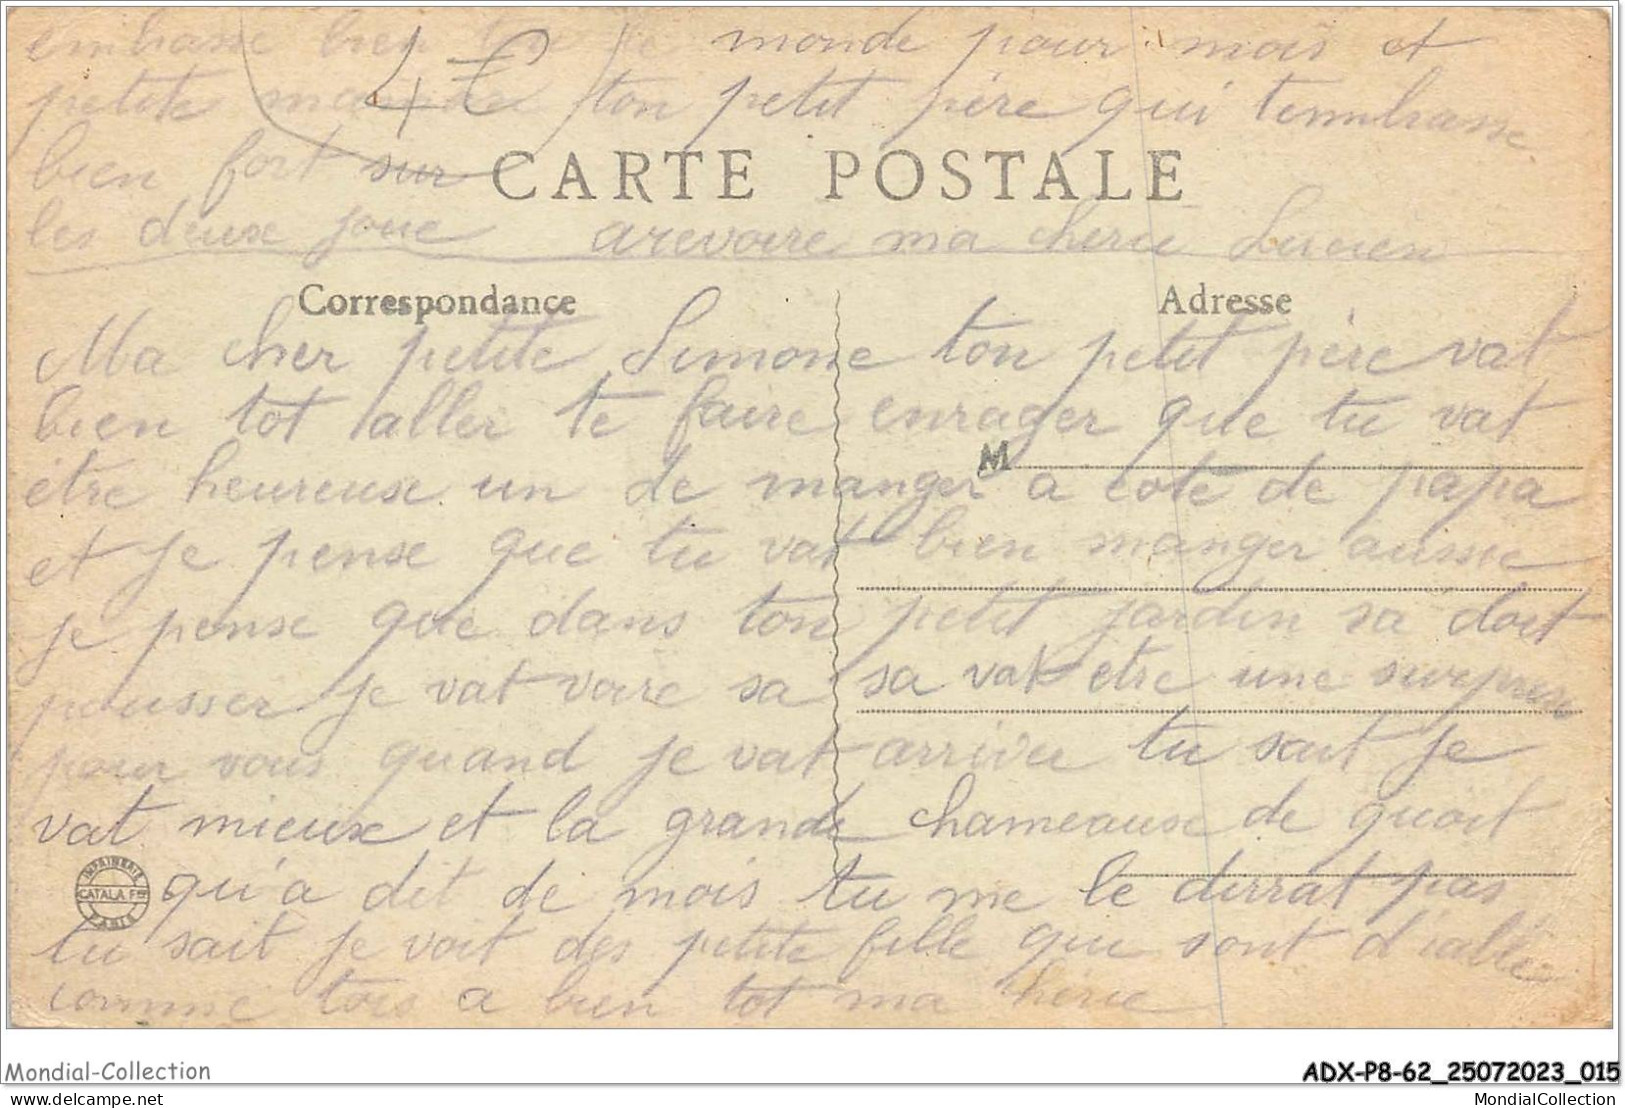 embrasse bien tou le monde pour mois et
petite ton petit père qui tembrasse
bien fort sur
CARTE POSTALE
les deux joue arevoire ma cherie Lucien
Correspondance
Adresse
Ma cher petite Simone ton petit père vat
bien tot aller te faire enrager que tu vat
M
être heureuse un de manger a coté de papa
et je pense que tu vat bien manger aussie
je pense que dans ton petit jardin sa doit
pousser je vat voire sa sa vat etre une surprise
pour vous quand je vat arriver tu sait je
vat mieux et la grande chameause de quoit
IMPRIMERIE CATALA FRES PARIS
qu'a dit de mois tu me le dirrat pas
tu sait je voit des petite fille que sont d'iable
comme tois a bien tot ma cherie
4€
Mondial-Collection
ADX-P8-62_25072023_015
delcampe.net
MondialCollection